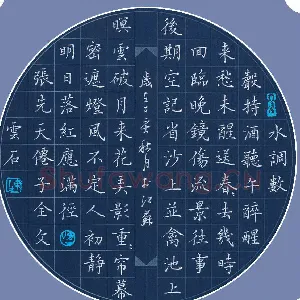 水調數
聲持酒聽午醉醒
来愁未醒送春春去幾時
回臨晚鏡傷流景往事
後期空記省沙上並禽池上
歲秋月於江蘇
暝雲破月来花弄影重:帘幕
密遮燈風不定人初静
明日落紅應滿徑
張先天僊子全文
雲石